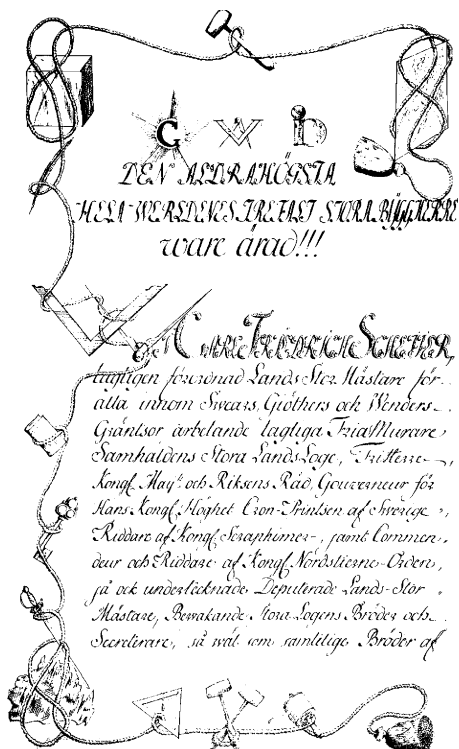 G W D
DEN ALDRAHÖGSTA
HELA WERLDENES TREFALT STORA BÿGGHERRE
ware ärad!!!
CARL FRIEDRICH SCHEFFER,
lagligen förordnad Lands Stor Mästare för
alla innom Swears, Giöthers och Wenders
Gräntsor arbetande lagliga FriaMurare
Samhäldens Stora Lands Loge, Friherre,
Kongl. Mayt. och Riksens Råd, Gouverneur för
Hans Kongl. Höghet Cron-Printsen af Swerige,
Riddare af Kongl. Seraphimer-, samt Commen-
deur och Riddare af Kongl. Nordstierne-Orden,
så ock undertecknade Deputerade Lands-Stor
Mästare, Bewakande, Stora Logens Bröder och
Secreterare, så wäl som samtelige Bröder af